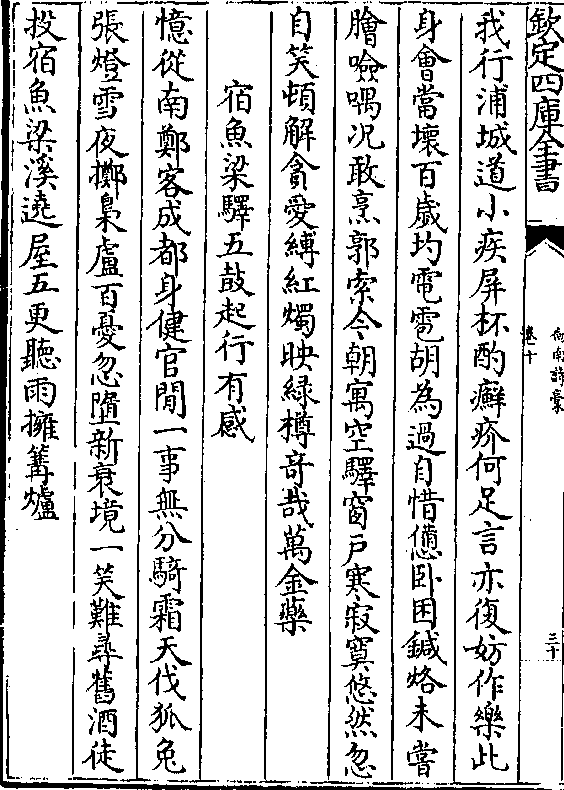 欽定四庫全書
劍南詩稾
卷十
三十
我行浦城道小疾屏杯酌癬疥何足言亦復妨作樂此
身會當壞百歲均電雹胡為過自惜憊卧困鍼烙未嘗
膾噞喁况敢烹郭索今朝寓空驛窗户寒寂寞悠然忽
自笑頓解貪愛縛紅燭映緑樽竒哉萬金藥
宿魚梁驛五鼓起行有感
憶從南鄭客成都身健官閒一事無分騎霜天伐狐兔
張燈雪夜擲梟盧百憂忽墮新衰境一笑難尋舊酒徒
投宿魚梁溪遶屋五更聽雨擁篝爐